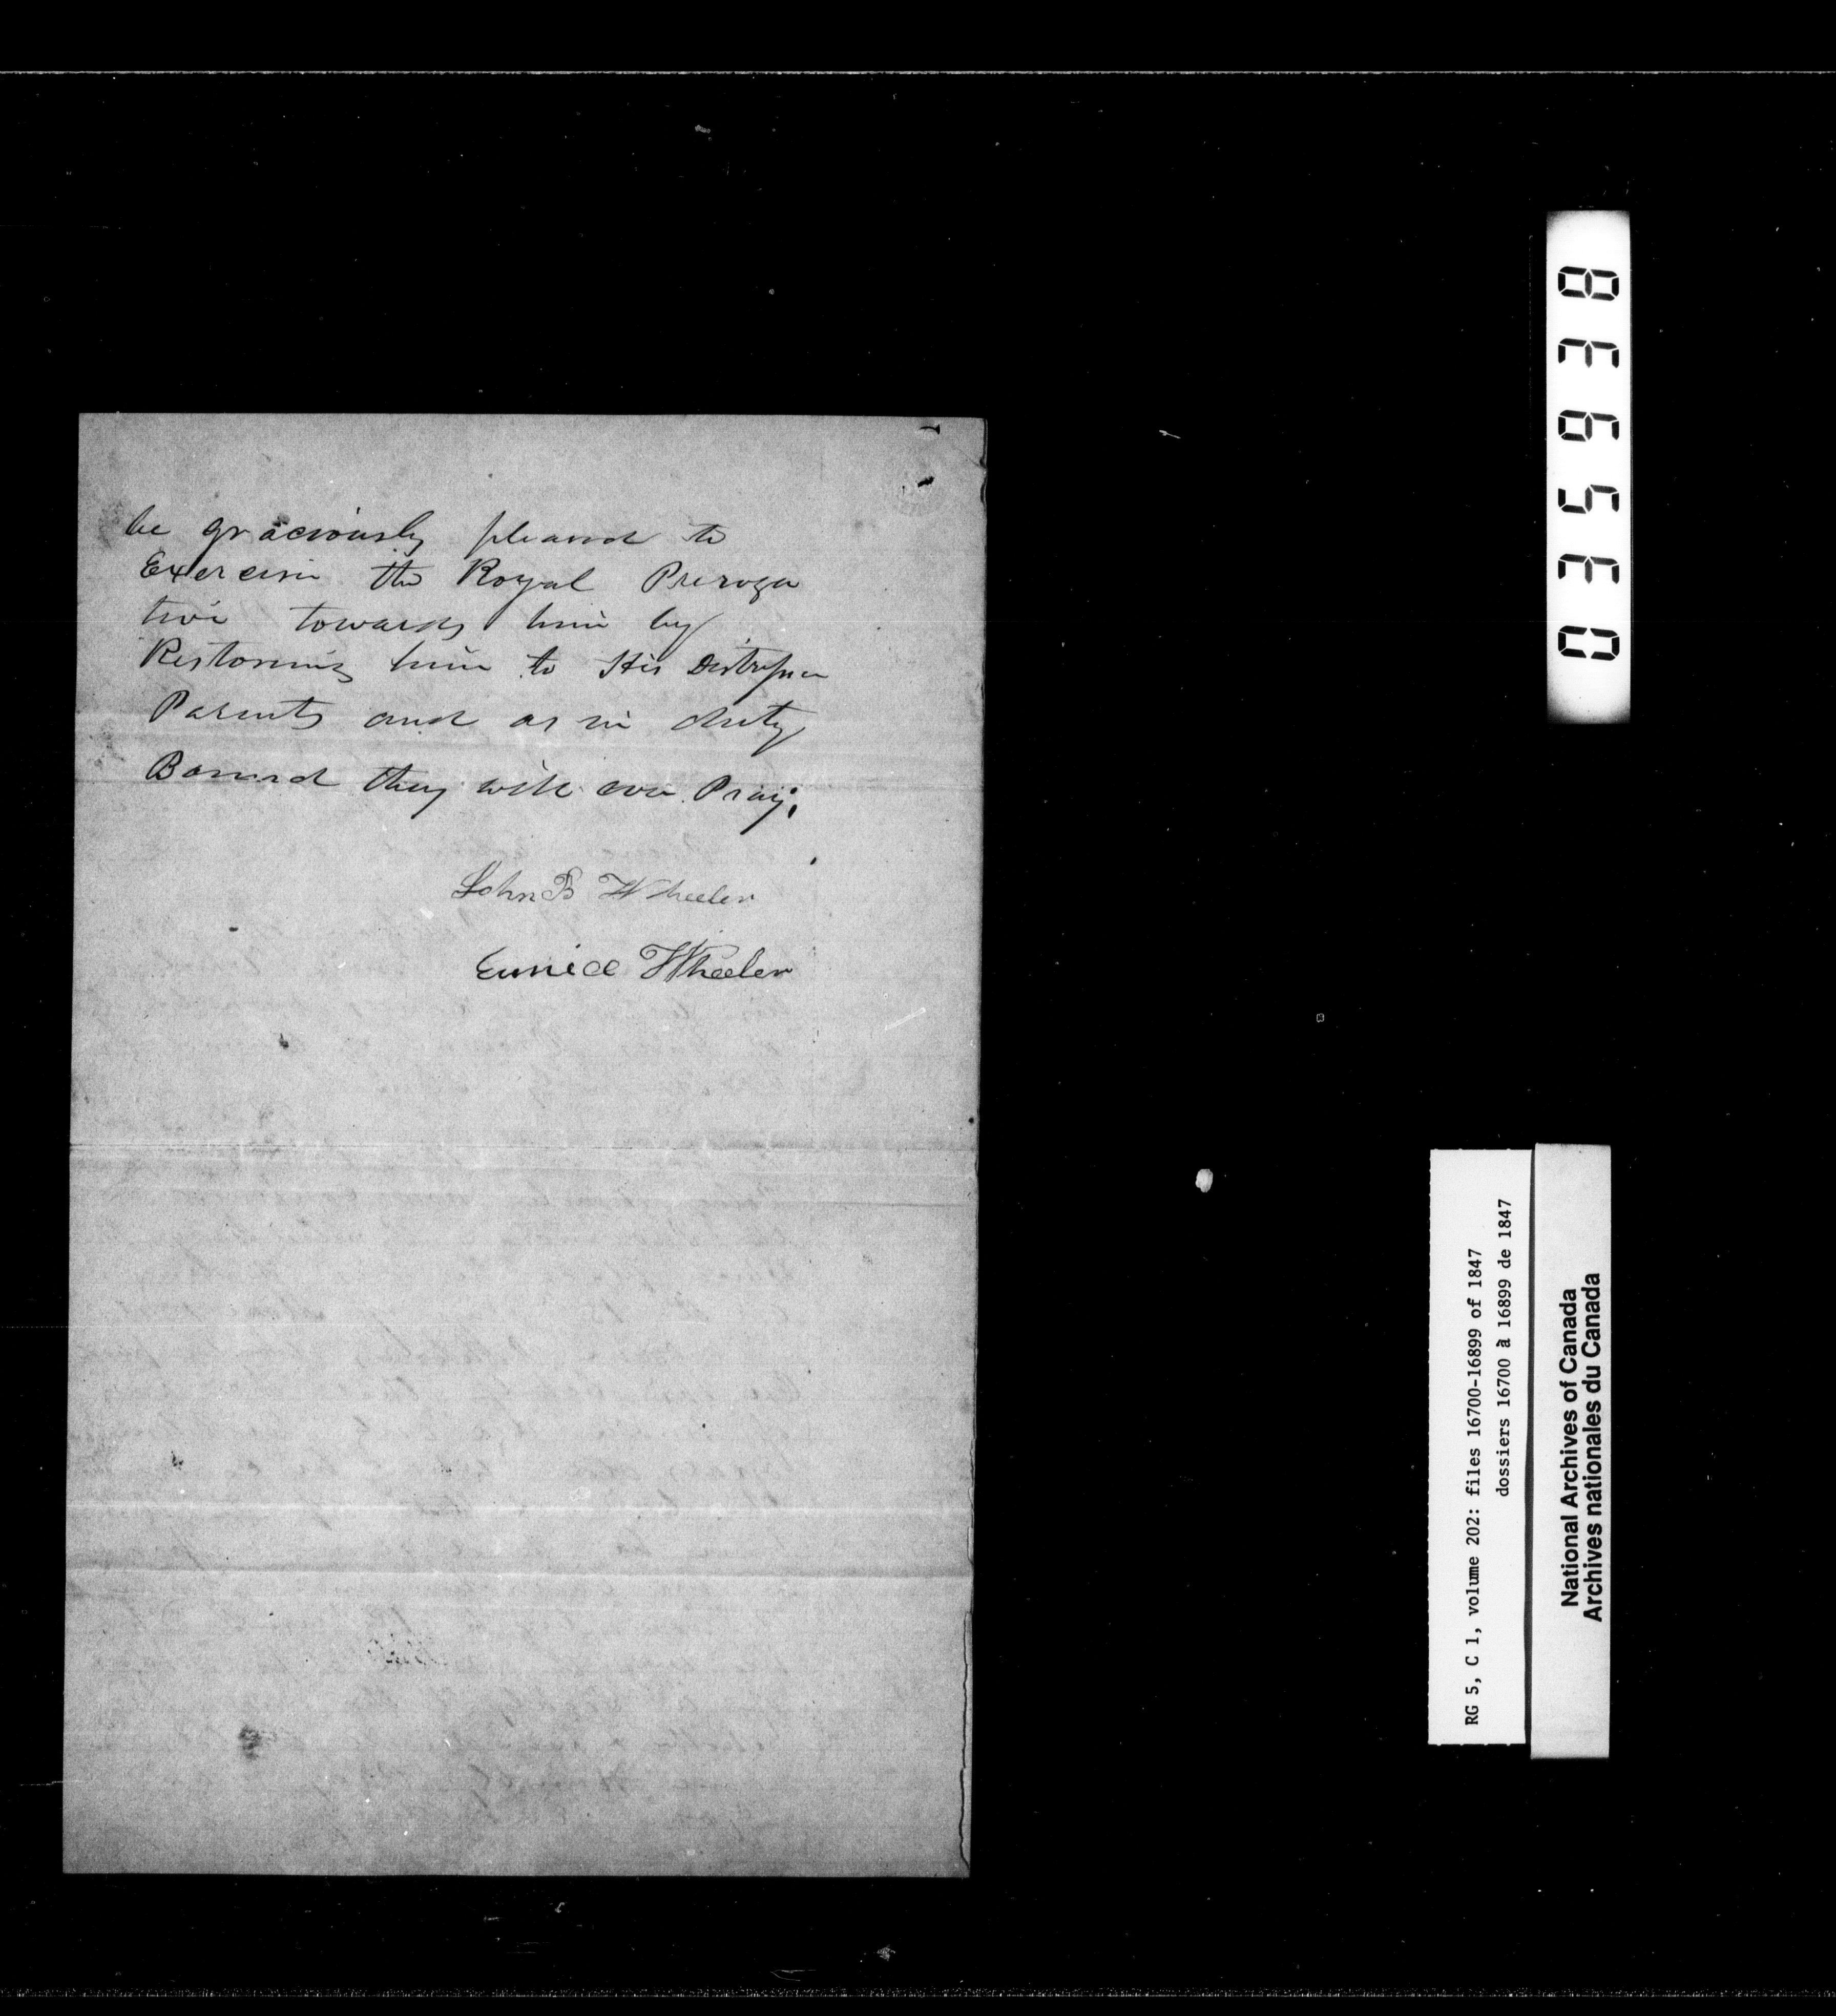 be graciously pleased to
Exercise the Royal Preroga
tive towards him by
Restoring him to His Distressed
Parents and as in duty
Bound they will ever Pray;
John B Wheeler
Eunice Wheeler
035938
RG 5, C 1, volume 202: files 16700-16899 of 1847
dossiers 16700 à 16899 de 1847
National Archives of Canada
Archives nationales du Canada